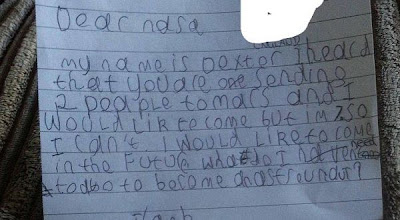 Dear nasa
my name is Dexter I heard
that you are sending
2 people to mars and I
would lik to come but im 7 so
I can't I would like to come
in the future what do I need
to do to become an astroununt?